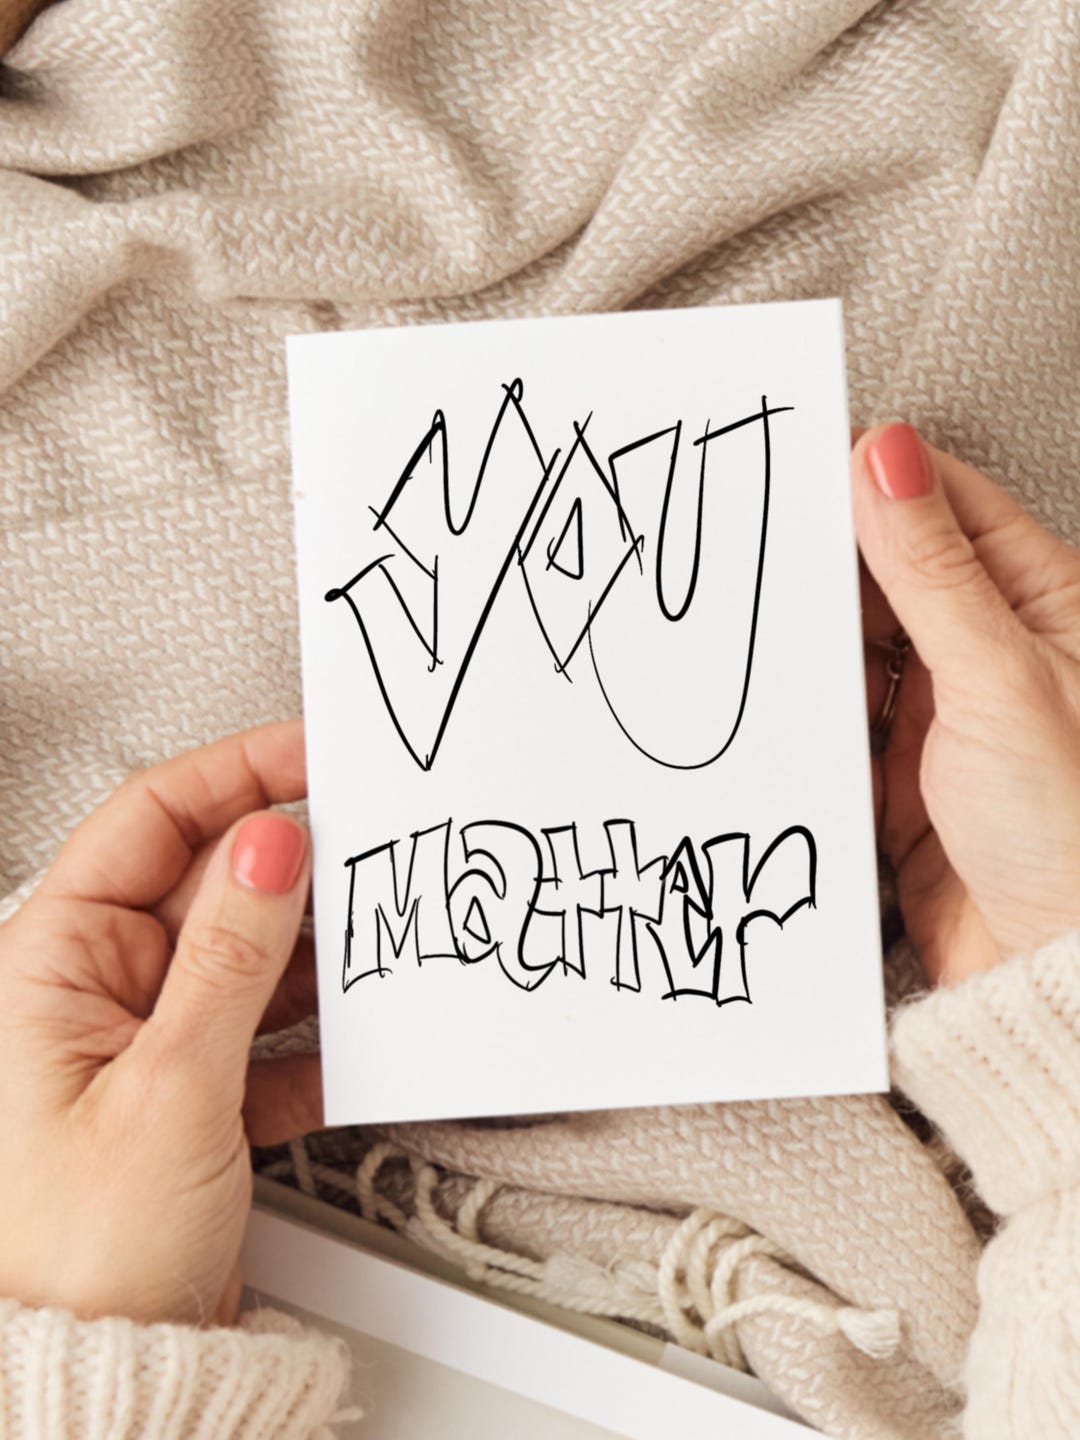 You
Matter